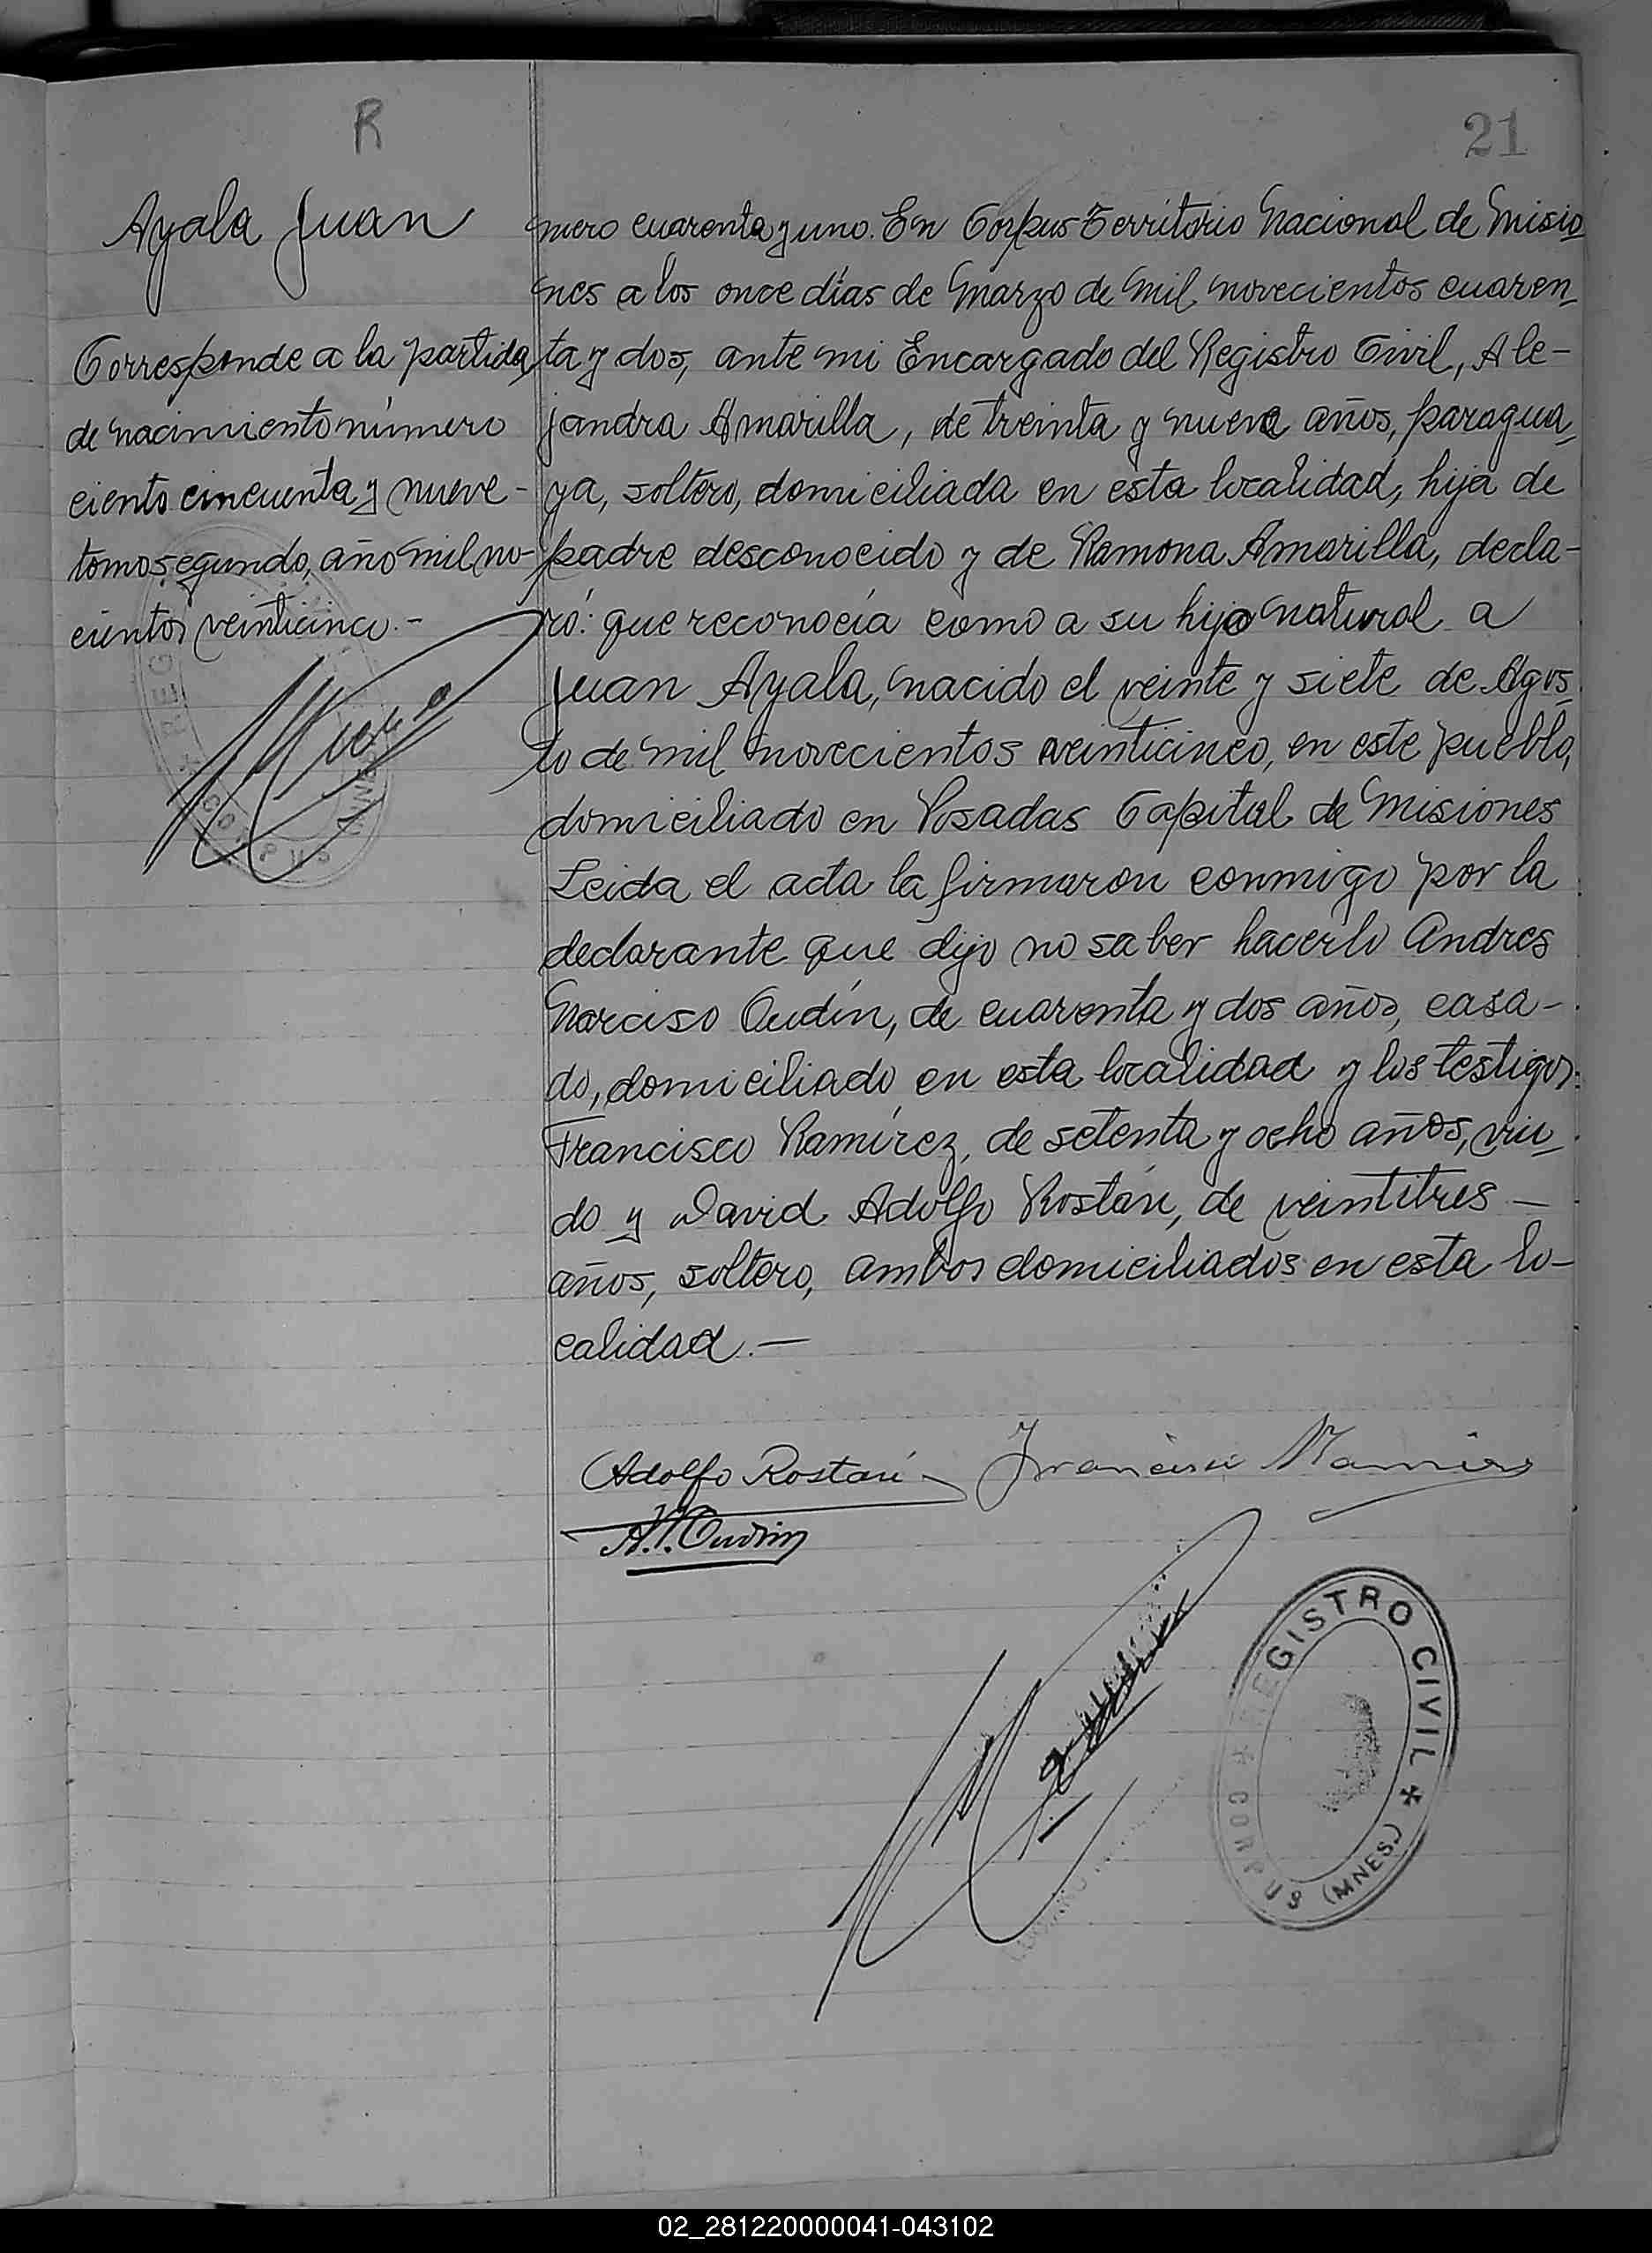 R
21
Ayala Juan
Corresponde a la partida
de nacimiento número
ciento cincuenta y nueve-
tomo segundo, año mil no-
cientos veinticinco.-
mero cuarenta y uno. En Corpus Territorio Nacional de Misio
nes a los once días de Marzo de mil novecientos cuaren
ta y dos, ante mi Encargado del Registro Civil, Ale-
jandra Amarilla, de treinta y nueve años, paragua
ya, soltero, domiciliada en esta localidad, hija de
padre desconocido y de Ramona Amarilla, decla-
ró: que reconocía como a su hijo natural a
Juan Ayala, nacido el veinte y siete de Agos
to de mil novecientos veinticinco, en este pueblo,
domiciliado en Posadas Capital de Misiones
Leida el acta la firmaron conmigo por la
declarante que dijo no saber hacerlo Andres
Narciso Oudín, de cuarenta y dos años, casa-
do, domiciliado en esta localidad y los testigos:
Francisco Ramírez, de setenta y ocho años, viu
do y David Adolfo Rostán, de veintitres —
años, soltero, ambos domiciliados en esta lo-
calidad.—
Adolfo Rostán Francisco Ramires
A. N. Oudin
REGISTRO CIVIL
CORPUS (MNES.)
02_281220000041-043102